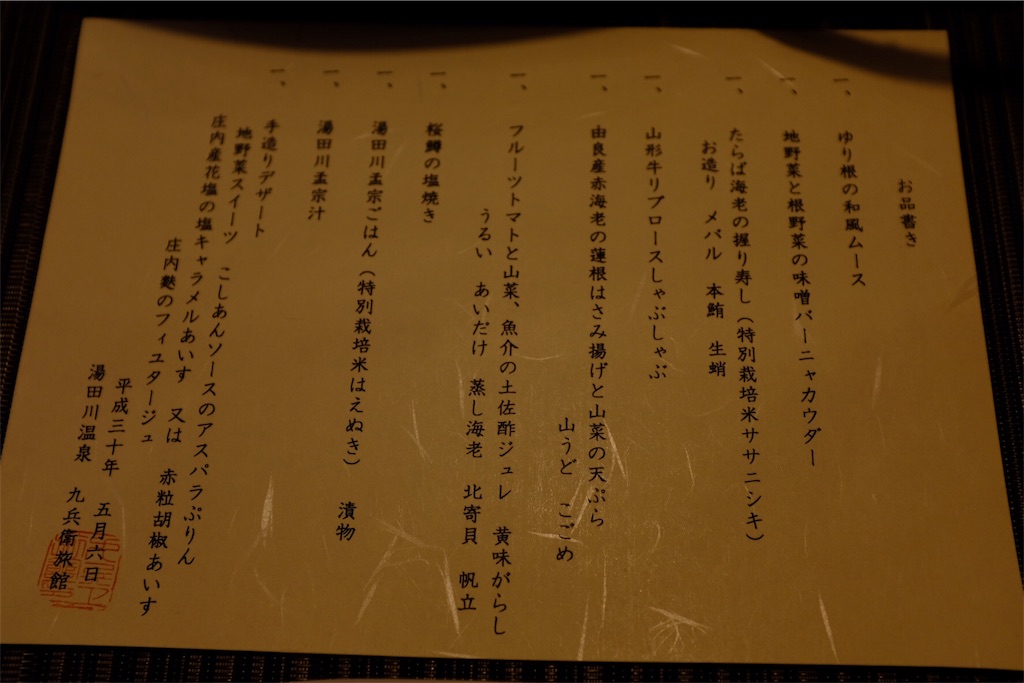 お品書き
一、 ゆり根の和風ムース
一、 地野菜と根野菜の味噌バーニャカウダー
一、 たらば海老の握り寿し（特別栽培米ササニシキ）
お造り メバル 本鮪 生蛸
一、 山形牛リブロースしゃぶしゃぶ
一、 由良産赤海老の蓮根はさみ揚げと山菜の天ぷら
山うど こごめ
一、 フルーツトマトと山菜、魚介の土佐酢ジュレ 黄味がらし
うるい あいだけ 蒸し海老 北寄貝 帆立
一、 桜鱒の塩焼き
一、 湯田川孟宗ごはん（特別栽培米はえぬき） 漬物
一、 湯田川孟宗汁
一、 手造りデザート
地野菜スイーツ こしあんソースのアスパラぷりん
庄内産花塩の塩キャラメルあいす 又は 赤粒胡椒あいす
庄内麩のフィユタージュ
平成三十年 五月六日
湯田川温泉 九兵衛旅館